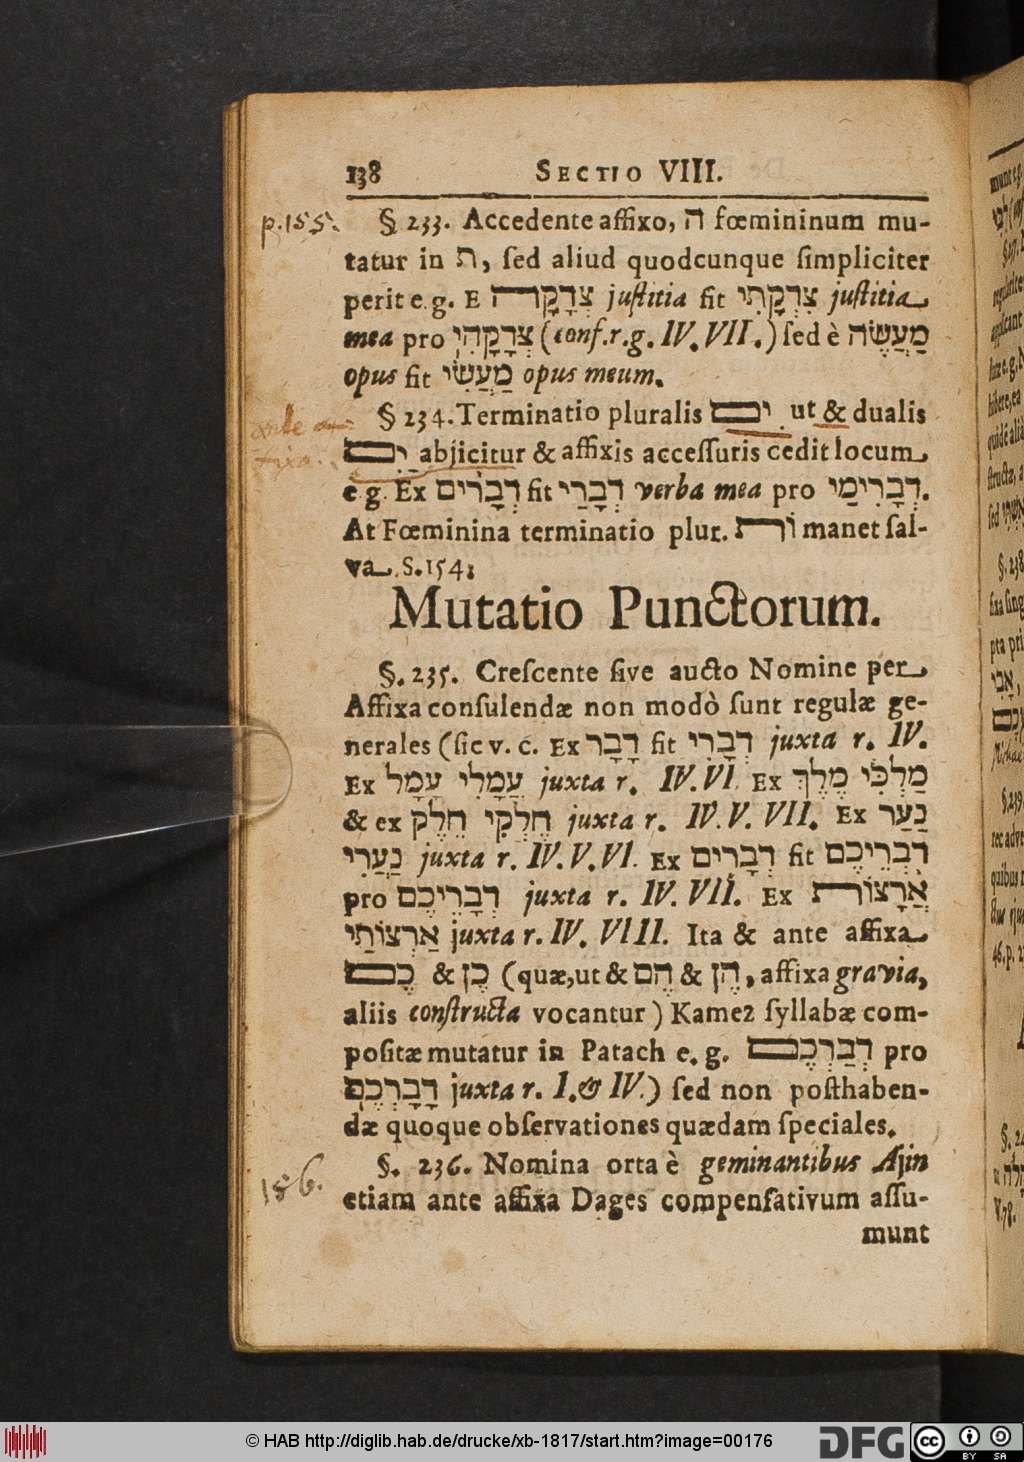 138 SECTIO VIII.
p. 155.
§ 233. Accedente affixo, ה fœmininum mu-
tatur in ת, ſed aliud quodcunque ſimpliciter
perit e.g. E צְדָקָה juſtitia fit צִדְקָתִי juſtitia
mea pro צְדָקָהִי (conf. r. g. IV. VII.) ſed è מַעֲשֶׂה
opus fit מַעֲשִׂי opus meum.
§ 234. Terminatio pluralis ים ut & dualis
יִם abjicitur & affixis acceſſuris cedit locum
e.g. Ex דְבָרִים fit דְבָרַי verba mea pro דְבָרִימַי.
At Fœminina terminatio plur. וֹת manet ſal-
va. S. 154.
Mutatio Punctorum.
§. 235. Creſcente ſive aucto Nomine per
Affixa conſulendæ non modò ſunt regulæ ge-
nerales (ſic v. c. Ex דָבָר fit דְבָרִי juxta r. IV.
Ex עָמָל עֲמָלִי juxta r. IV. VI. Ex מֶלֶךְ מַלְכִּי
& ex חֵלֶק חֶלְקִי juxta r. IV. V. VII. Ex נַעַר
נַעֲרִי juxta r. IV. V. VI. Ex דְבָרִים fit דִבְרֵיכֶם
pro דְבָרֵיכֶם juxta r. IV. VII. Ex אֲרָצוֹת
אַרְצוֹתַי juxta r. IV. VIII. Ita & ante affixa
כֶם & כֶן (quæ, ut & הֶם & הֶן, affixa gravia,
aliis conſtructa vocantur) Kamez ſyllabæ com-
poſitæ mutatur in Patach e. g. דְבַרְכֶם pro
דָבָרְכֶם juxta r. I. & IV.) ſed non poſthaben-
dæ quoque obſervationes quædam ſpeciales.
156.
§. 236. Nomina orta è geminantibus Ajin
etiam ante affixa Dages compenſativum aſſu-
munt
© HAB http://diglib.hab.de/drucke/xb-1817/start.htm?image=00176
DFG
cc BY SA